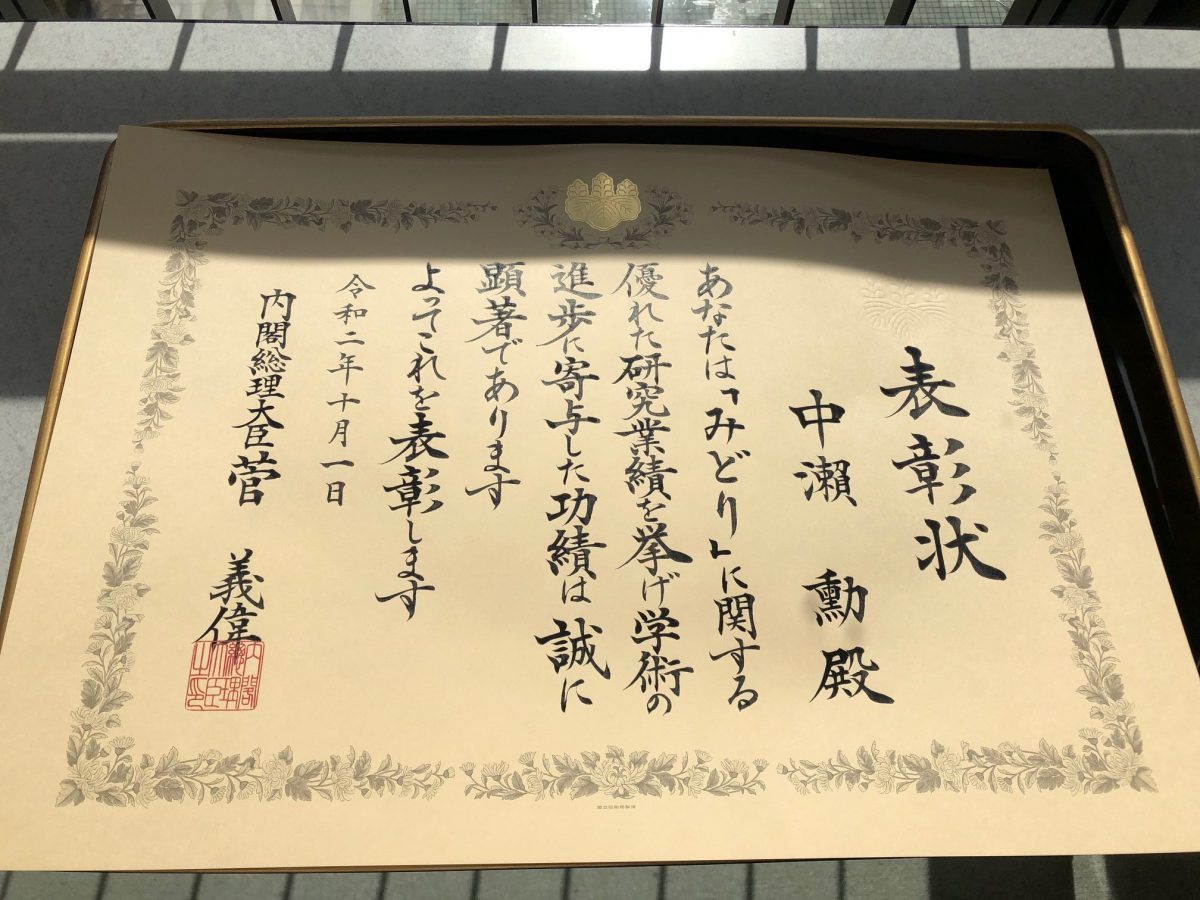 表彰状
中瀬 勳殿
あなたは「みどり」に関する
優れた研究業績を挙げ学術の
進歩に寄与した功績は誠に
顕著であります
よってこれを表彰します
令和二年十月一日
内閣総理大臣 菅 義偉
内閣総理大臣之印